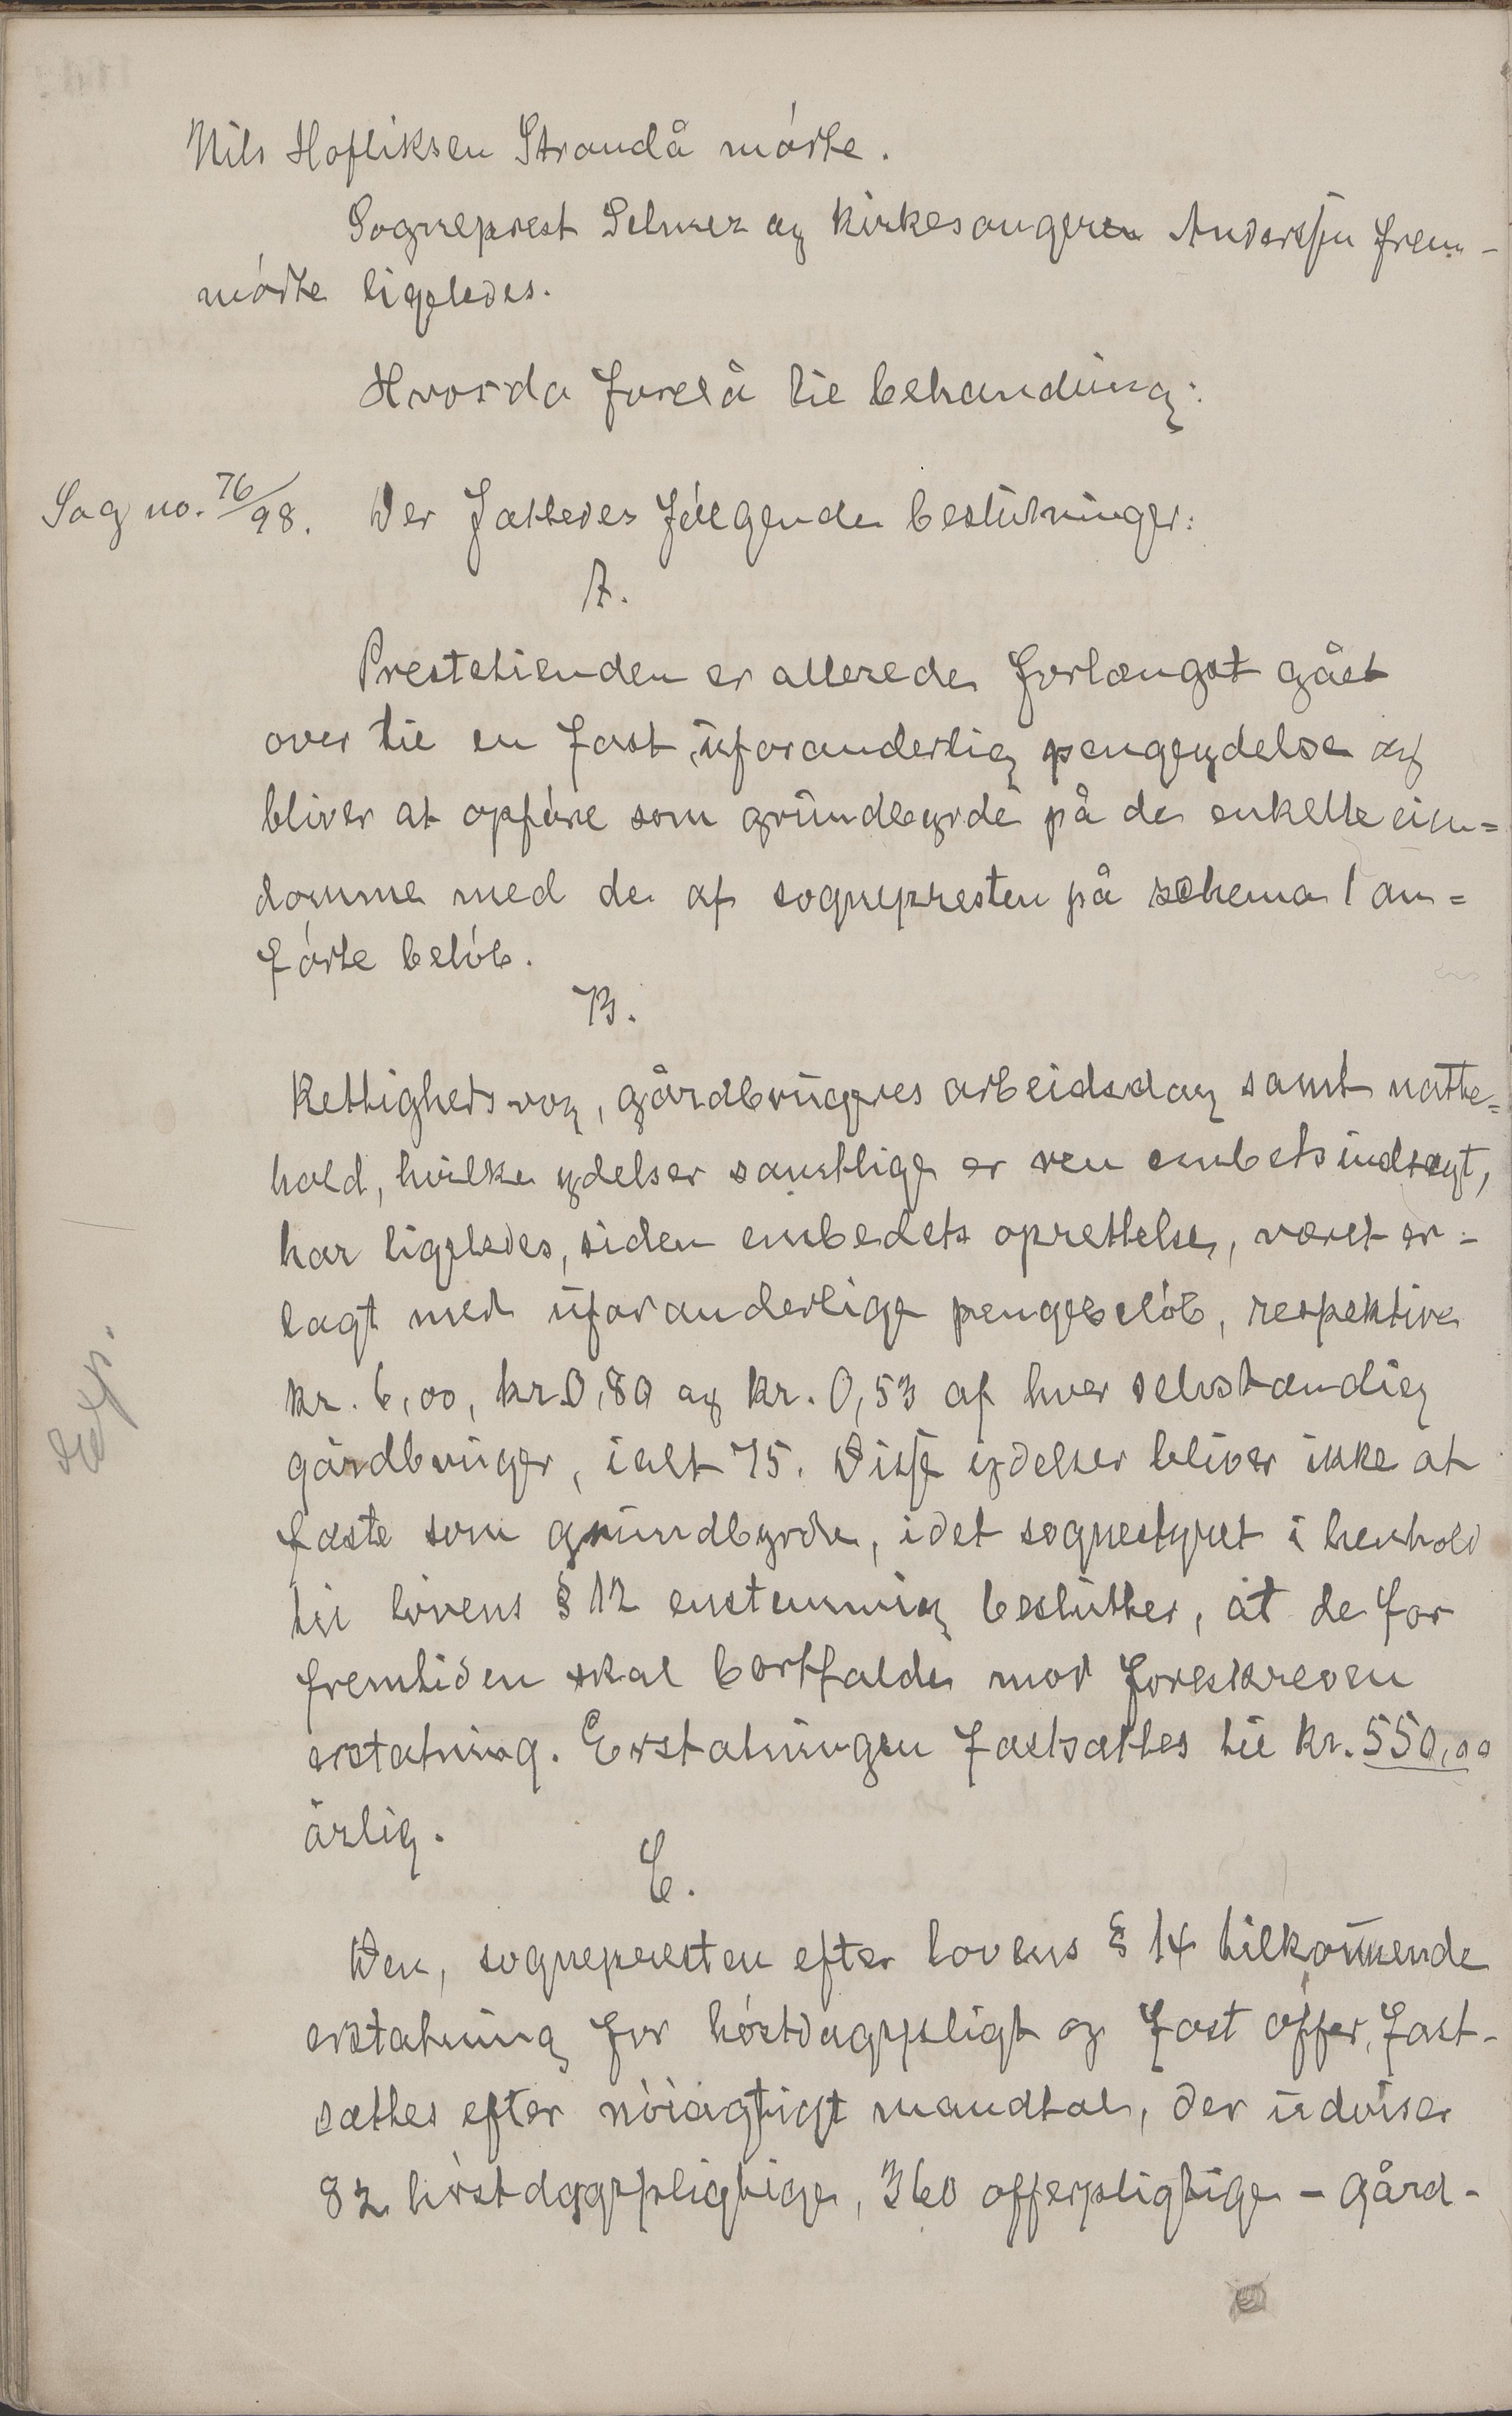 Nils Hofliksen Strandå mødte.
Sogneprest Selmer og kirkesangeren Anderssen frem-
mødte ligeledes.
Hvorda forelå til behandling:
Sag no. 76/98. Der fattedes følgende beslutninger:
A.
Prestetienden er allerede forlængst gået
over til en fast, uforanderlig pengeydelse og
bliver at opføre som grundbyrde på de enkelte eien=
domme med de af sognepresten på schema 1 an=
førte beløb.
B.
Rettighedsvog, gårdbrugeres arbeidsdag samt natte=
hold, hvilke ydelser samtlige er ren embetsindtægt,
har ligeledes, siden embedets oprettelse, været er-
lagt med uforanderlige pengebeløb, respektive
kr. 6,00, kr. 0,80 og kr. 0,53 af hver selvstændig
gårdbruger, ialt 75. Disse ydelser bliver ikke at
fæste som grundbyrde, idet sognestyret i henhold
til lovens § 12 enstemmig beslutter, at de for
fremtiden skal bortfalde mod foreskreven
erstatning. Erstatningen fastsættes til kr. 550,00
årlig.
C.
Den, sognepresten efter lovens § 14 tilkommende
erstatning for høstdagspligt og fast offer, fast-
sættes efter nøiagtigt mandtal, der udviser
82 høstdagspligtige, 360 offerpligtige - gård-